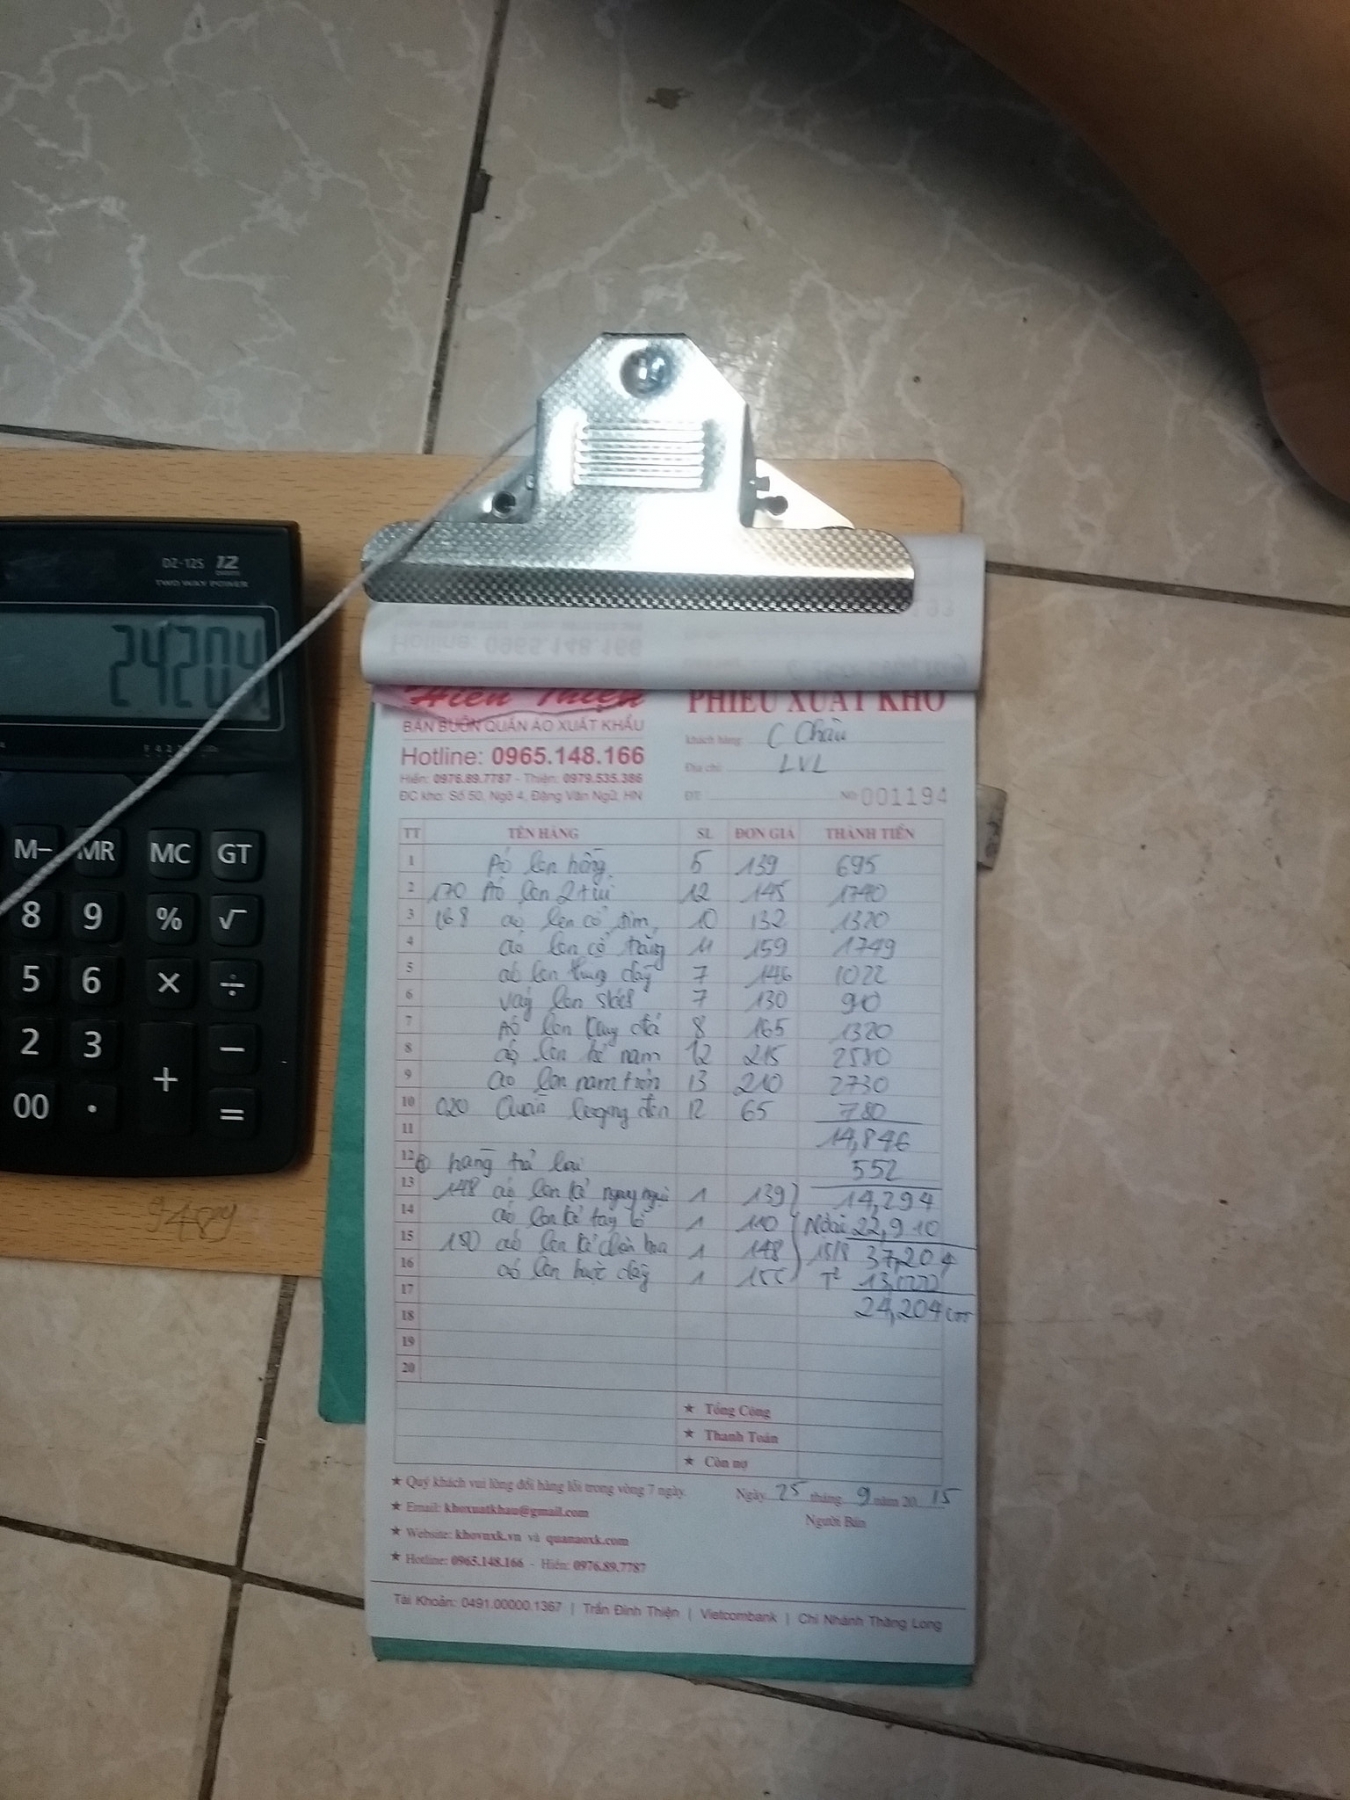 DZ-12S 12
TWO WAY POWER
24204
M- MR MC GT
8 9 % √
5 6 × ÷
2 3 + −
00 . =
9489
Hotline: 0965.148.166
Hiền Thiện
BÁN BUÔN QUẦN ÁO XUẤT KHẨU
Hotline: 0965.148.166
Hiền: 0976.89.7787 - Thiện: 0979.535.386
ĐC kho: Số 50, Ngõ 4, Đặng Văn Ngữ, HN
PHIẾU XUẤT KHO
Khách hàng: C Châu
Địa chỉ: LVL
ĐT: NO 001194
TT TÊN HÀNG SL ĐƠN GIÁ THÀNH TIỀN
1 Áo len hồng 5 139 695
2 170 Áo len 2 túi 12 145 1740
3 168 áo len cổ tim 10 132 1320
4 áo len cổ 11 159 1749
5 áo len dây 7 146 1022
6 váy len 7 130 910
7 Áo len 8 165 1320
8 áo len kẻ nam 12 215 2580
9 áo len nam tròn 13 210 2730
10 020 Quần legging đen 12 65 780
11 14,846
12 hàng trả lại 552
13 148 áo len kẻ 1 139 14,294
14 áo len kẻ tay lỡ 1 110 22,910
15 180 áo len kẻ 1 148 15/8 37,204
16 áo len dây 1 155 13,000
17 24,204
18
19
20
★ Tổng Cộng
★ Thanh Toán
★ Còn nợ
★ Quý khách vui lòng đổi hàng lỗi trong vòng 7 ngày
Ngày 25 tháng 9 năm 20 15
★ Email: khoxuatkhau@gmail.com
Người Bán
★ Website: khovnxk.vn và quanaoxk.com
★ Hotline: 0965.148.166 - Hiền: 0976.89.7787
Tài Khoản: 0491.00000.1367 | Trần Đình Thiện | Vietcombank | Chi Nhánh Thăng Long